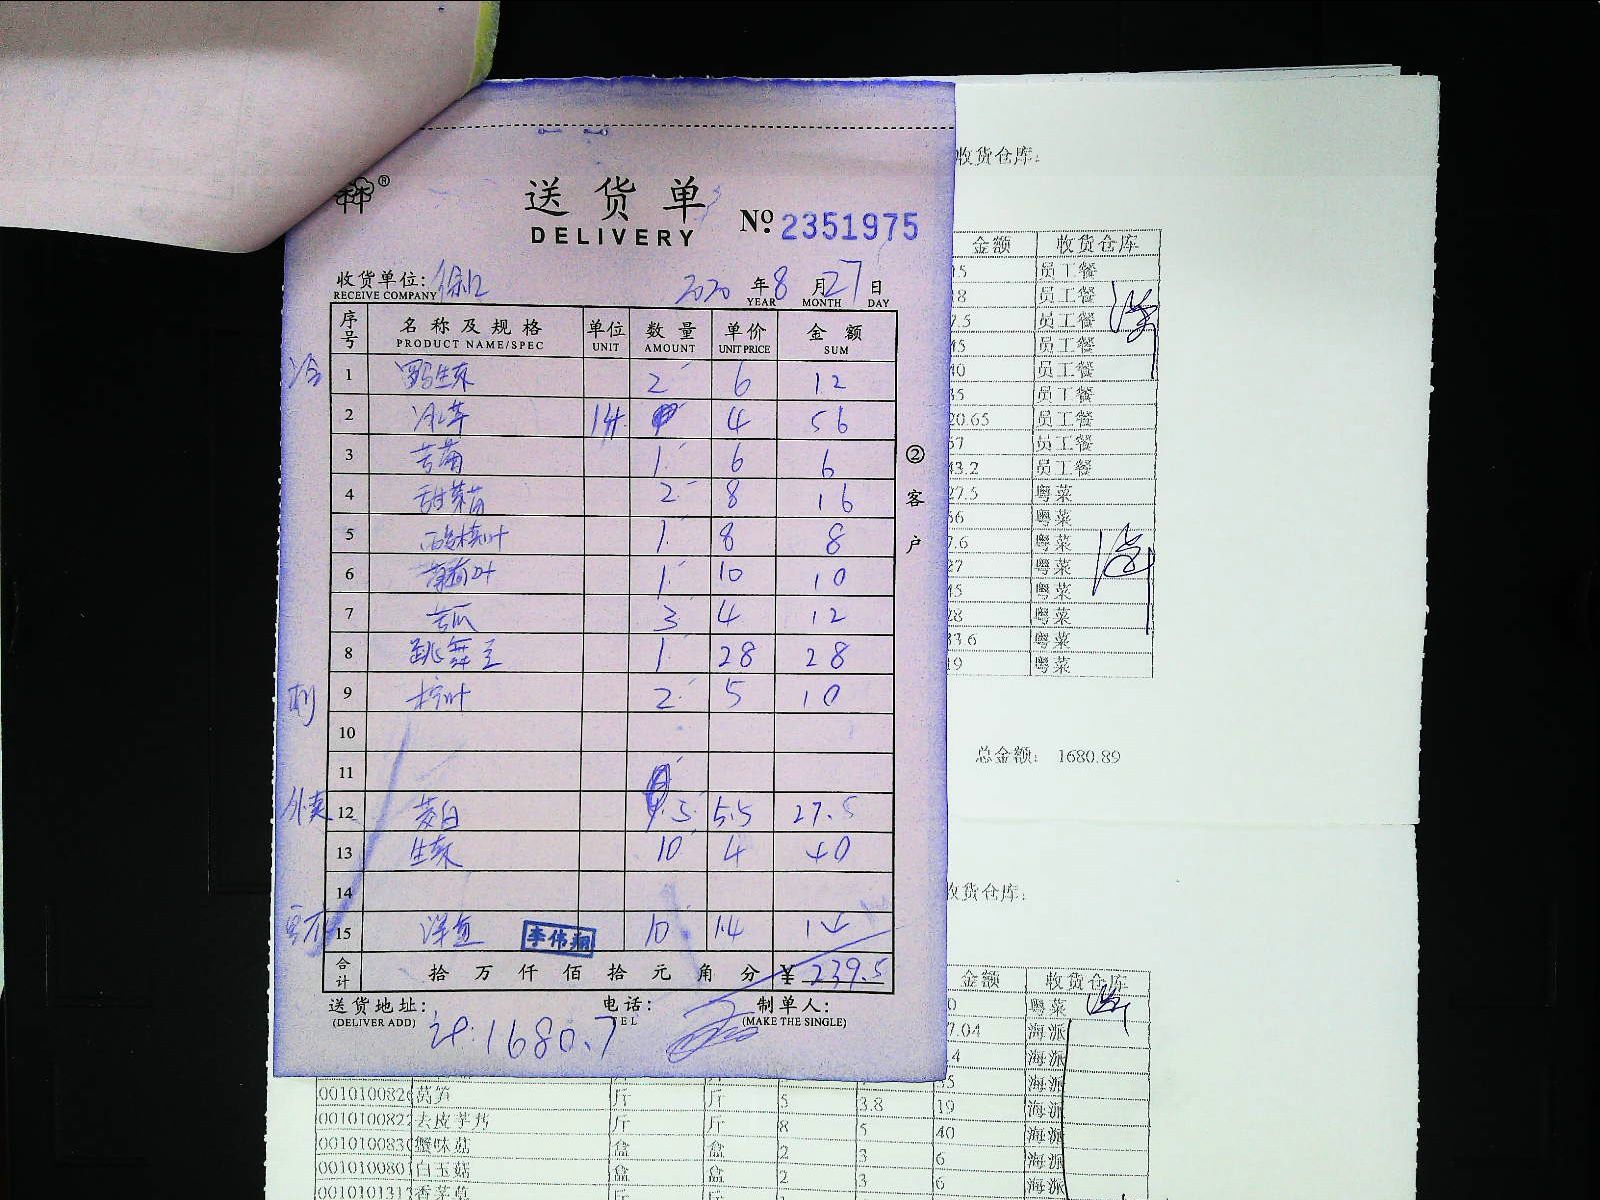 送货单
DELIVERY
№ 2351975
收货单位: 徐汇 2020 年 8 月 27 日
RECEIVE COMPANY YEAR MONTH DAY
序号 名称及规格 单位 数量 单价 金额
PRODUCT NAME/SPEC UNIT AMOUNT UNIT PRICE SUM
冷 1 罗马生菜 2 6 12
2 冰草 14 4 56
3 苦菊 1 6 6
4 甜菜苗 2 8 16
5 酸模叶 1 8 8
6 10 10
7 苦瓜 3 4 12
8 跳舞兰 1 28 28
刺 9 柠叶 2 5 10
10
11
外卖 12 茭白 5 5.5 27.5
13 生菜 10 4 40
14
15 洋鱼 10 1.4 14
李伟翔
合计 拾万仟佰拾元角分 ¥ 239.5
送货地址: 电话: 制单人:
(DELIVER ADD) TEL (MAKE THE SINGLE)
计:1680.7
② 客户
收货仓库:
金额 收货仓库
员工餐
员工餐
7.5 员工餐
45 员工餐
40 员工餐
员工餐
20.65 员工餐
员工餐
43.2 员工餐
27.5 粤菜
粤菜
7.6 粤菜
27 粤菜
粤菜
28 粤菜
33.6 粤菜
19 粤菜
总金额: 1680.89
收货仓库:
金额 收货仓库
0 粤菜
7.04 海派
海派
海派
0010100826 莴笋 斤 斤 5 3.8 19 海派
0010100822 去皮芋艿 斤 斤 8 5 40 海派
0010100830 蟹味菇 盒 盒 2 3 6 海派
0010100801 白玉菇 盒 盒 2 3 6 海派
0010101313 香茅草 斤 斤